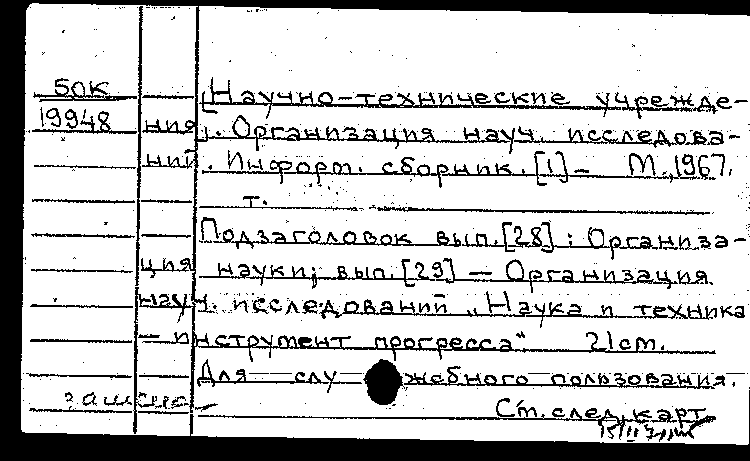 БОК
19948
[Научно-технические учрежде-
ния]. Организация науч. исследова-
ний. Информ. сборник. [1] – М., 1967.
т.
Подзаголовок вып. [28] : Организа-
ция науки; вып. [29] — Организация
науч. исследований „Наука и техника
— инструмент прогресса“ 21cm.
Для слу жебного пользования.
См. след. карт